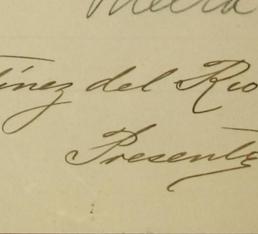 tínez del Rio
Presente